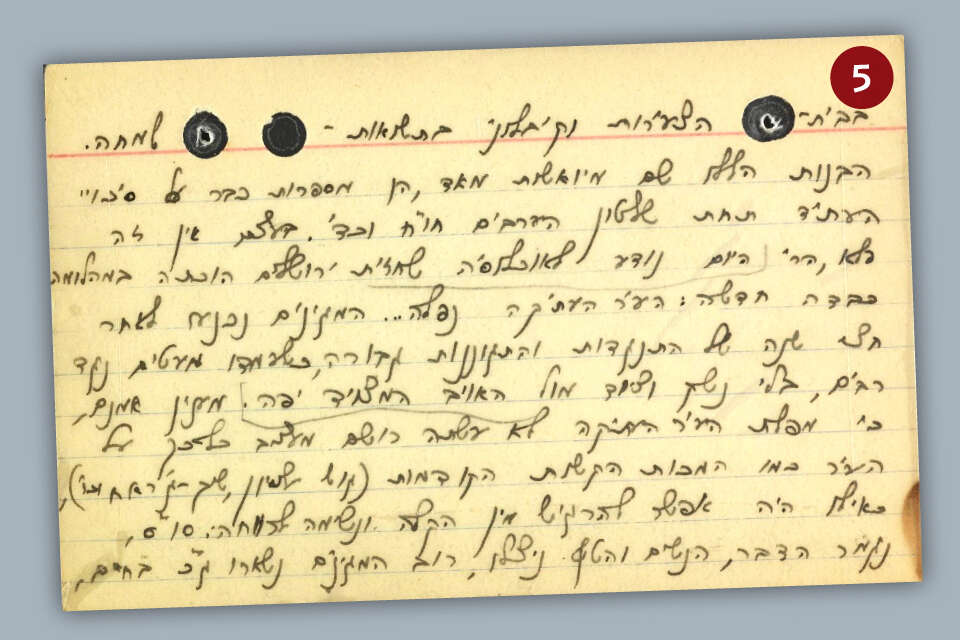 5
בבית- הצעירות וקיבלוני בתשואות - שמחה.
הבנות הללו שם מיואשות מאד, הן מספרות כבר על סיכויי
העתיד תחת שלטון הערבים חו"ח וכד'. בעצם אין זה
פלא, הרי היום נודע לאוכלוסיה שחזית ירושלים הוכתה במהלומה
כבדה חדשה: העיר העתיקה נפלה... המגינים נכנעו לאחר
חצי שנה של התנגדות והתגוננות גבורה, כשעמדו מעטים נגד
רבים, בלי נשק וציוד מול האויב המצויד יפה. מענין אמנם,
כי מפלת העיר העתיקה לא עשתה רושם מעציב כל-כך על
העיר כמו המכות הקשות הקודמות (גוש עציון, שיך-ג'ראח וכו'),
כאילו היה אפשר להרגיש מין הקלה ונשימה לרווחה: סו"ס,
נגמר הדבר, הנשים והטף ניצלו, רוב המגינים נשארו ג"כ בחיים,